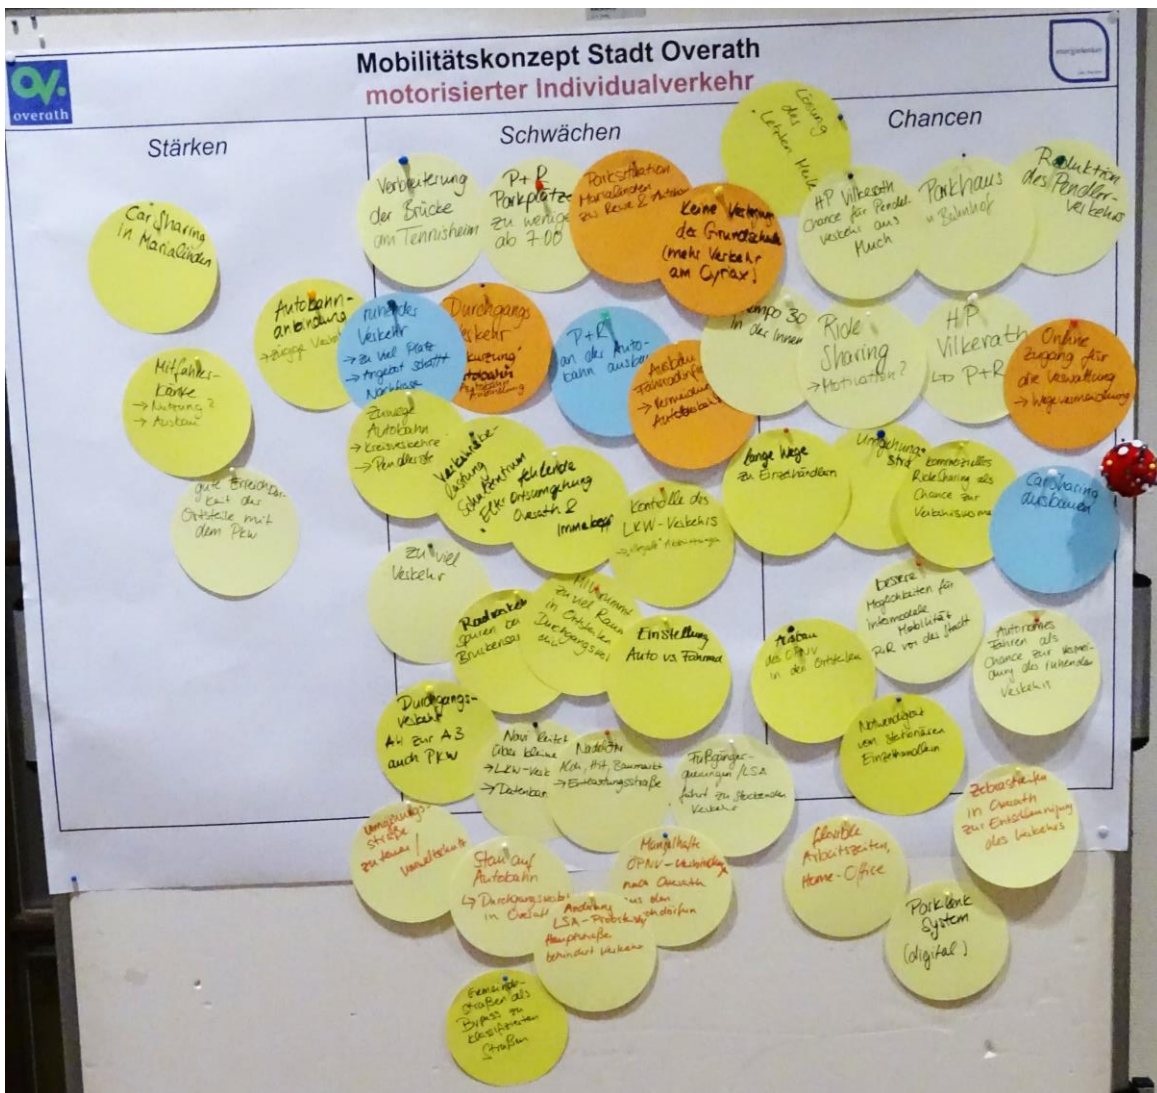 Mobilitätskonzept Stadt Overath
motorisierter Individualverkehr
OV.
overath
energielenker
Stärken
Schwächen
Chancen
Car Sharing
in Marialinden
Autobahn-
anbindung
Mitfahrer-
bänke
→ Nutzung?
→ Ausbau
gute Erreichbar-
keit der
Ortsteile mit
dem PKW
Verbreiterung
der Brücke
am Tennisheim
P+R
Parkplätze
zu wenige
ab 7:00
Parksituation
Marialinden
zw Rewe &
Keine Verlegung
der Grundschule
(mehr Verkehr
am Cyriax)
ruhendes
Verkehr
→ zu viel Platz
→ Angebot schafft
Nachfrage
Durchgangs
Verkehr
Autobahn
P+R
an der Auto-
bahn ausbauen
Ausbau
Zuwege
Autobahn
→ Kreisverkehre
→ Pendler
Verkehrsbe-
lastung
Schulzentrum
fehlende
Ortsumgehung
Overath &
Immekeppel
Kontrolle des
LKW-Verkehrs
zu viel
Verkehr
Spuren
MIV nimmt
zu viel Raum
in Ortsteilen
Einstellung
Auto vs. Fahrrad
Durchgangs-
verkehr
A4 zur A3
auch PKW
Navi leitet
über kleine
→ LKW-Verk
→ Datenban
Aldi, Hit, Baumarkt
→ Entlastungsstraße
Fußgänger-
querungen/LSA
führt zu stockenden
Verkehr
Umgehungs-
straße
zu teuer/
Umweltschutz
Stau auf
Autobahn
↳ Durchgangsverk
in Overath
Änderung
LSA-Probsteistr
Hauptstraße
behindert Verkehr
Mangelhafte
ÖPNV-Verbindung
nach Overath
aus den
Gemeinde-
straßen als
Bypass zu
klassifizierten
Straßen
Lösung
der
"Letzten Meile"
HP Vilkerath
Chance für Pendel-
verkehr aus
Much
Parkhaus
Bahnhof
Reduktion
des Pendler-
verkehrs
Tempo 30
in der Innen
Ride
Sharing
→ Motivation?
HP
Vilkerath
↳ P+R
Online
Zugang für
die Verwaltung
→ Wegevermeidung
lange Wege
zu Einzelhändlern
Umgehungs-
stra
kommerzielles
RideSharing als
Chance zur
Car Sharing
ausbauen
bessere
Möglichkeiten für
Intermodale
Mobilität
P+R vor der Stadt
Ausbau
des ÖPNV
in den Ortsteilen
Autonomes
Fahren als
Chance zur Vermei-
dung des ruhenden
Verkehrs
Notwendigkeit
von stationären
Einzelhändlern
Zebrastreifen
in Overath
zur Entschleunigung
des Verkehrs
flexible
Arbeitszeiten,
Home-Office
Parklenk
System
(digital)